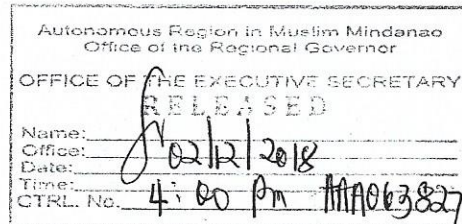 Autonomous Region in Muslim Mindanao
Office of the Regional Governor
OFFICE OF THE EXECUTIVE SECRETARY
RELEASED
Name:
Office:
Date: 02/12/2018
Time: 4:00 pm
CTRL. No. AAA063827